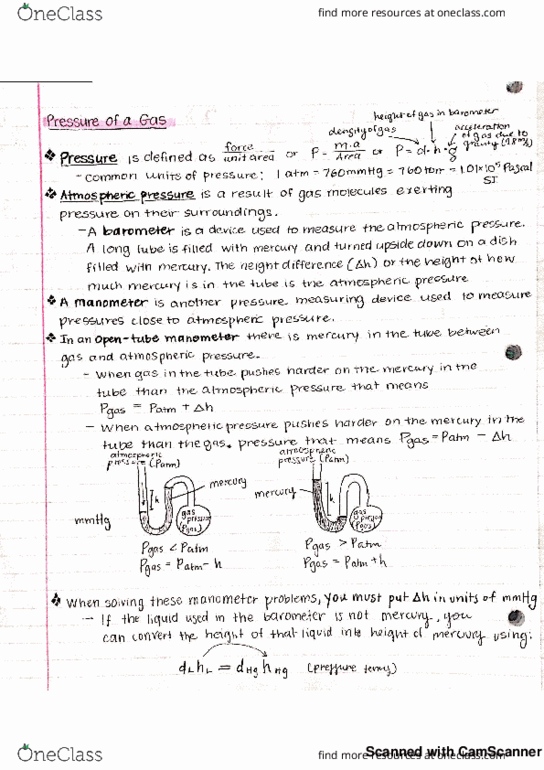 OneClass
find more resources at oneclass.com
Pressure of a Gas
height of gas in barometer
density of gas
acceleration of gas due to gravity (9.8 m/s
❖ Pressure is defined as force/unit area or P = m.a/Area or P = d·h·g
- common units of pressure: 1 atm = 760mmHg = 760 torr = 1.01×10⁵ Pascal
SI
❖ Atmospheric pressure is a result of gas molecules exerting
pressure on their surroundings.
- A barometer is a device used to measure the atmospheric pressure.
A long tube is filled with mercury and turned upside down on a dish
filled with mercury. The height difference (Δh) or the height of how
much mercury is in the tube is the atmospheric pressure
❖ A manometer is another pressure measuring device used to measure
pressures close to atmospheric pressure.
❖ In an open-tube manometer there is mercury in the tube between
gas and atmospheric pressure.
- When gas in the tube pushes harder on the mercury in the
tube than the atmospheric pressure that means
Pgas = Patm + Δh
- When atmospheric pressure pushes harder on the mercury in the
tube than the gas. pressure that means Pgas = Patm - Δh
atmospheric
pressure (Patm)
atmospheric
pressure (Patm)
mercury
mercury
h
h
gas pressure (Pgas)
gas pressure (Pgas)
mmHg
Pgas < Patm
Pgas = Patm - h
Pgas > Patm
Pgas = Patm + h
❖ When solving these manometer problems, you must put Δh in units of mmHg
- If the liquid used in the barometer is not mercury, you
can convert the height of that liquid into height of mercury using:
dLhL = dHg hHg (pressure terms)
OneClass
find more resources at oneclass.com
Scanned with CamScanner